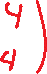 4 )
4